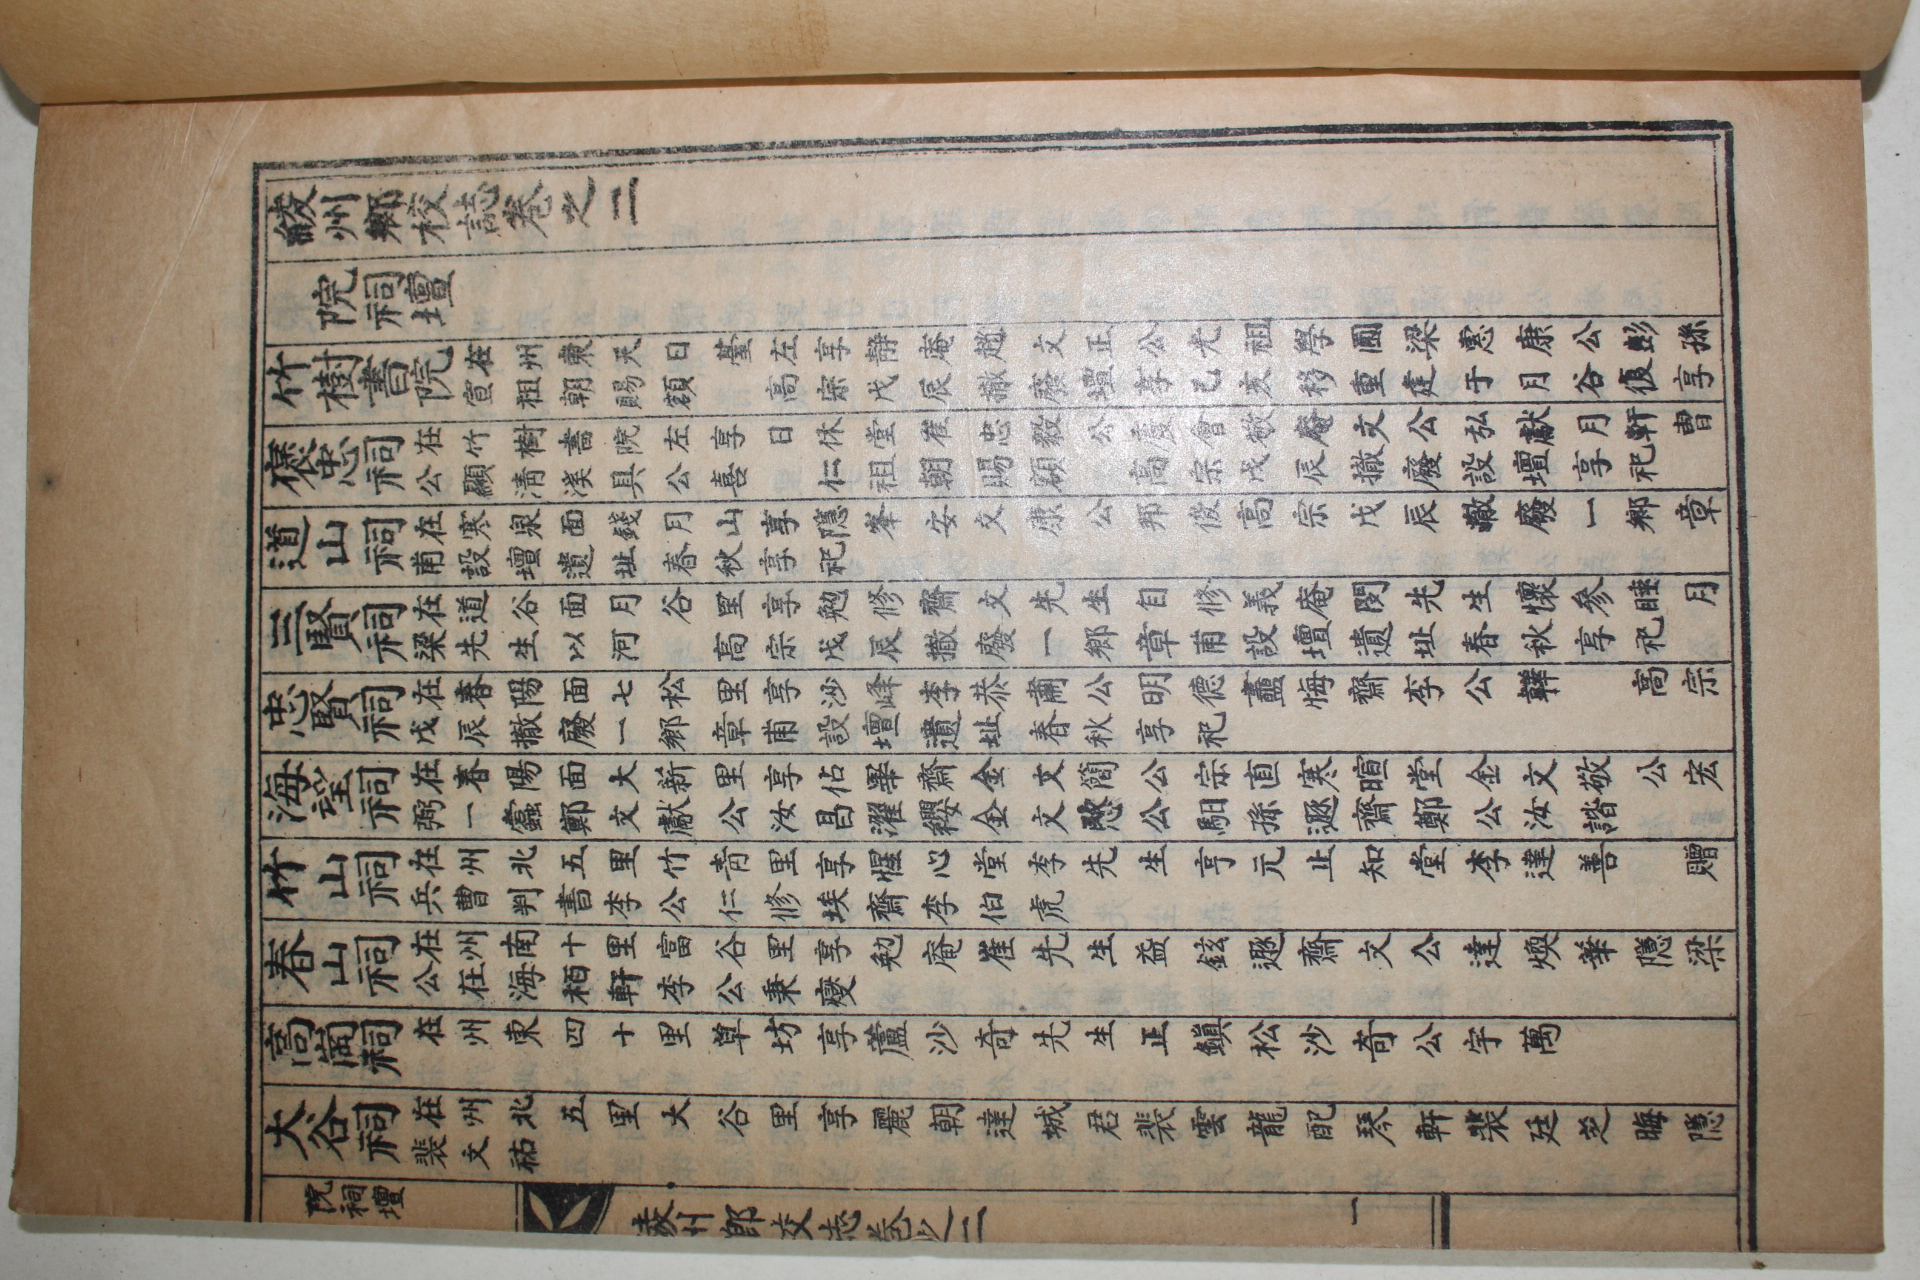 綾州鄕校誌卷之二
院祠壇
竹樹書院
在州東天日臺左享靜庵趙文正公光祖學圃梁惠康公彭孫
宣祖朝賜額 高宗戊辰撤廢壇享己亥移重建于月谷復享
褒忠祠
在竹樹書院左享日休堂崔忠毅公慶會敬庵文公弘獻月軒曺
公顯淸溪具公喜 仁祖朝賜額 高宗戊辰撤廢設壇享祀
道山祠
在寒泉面錢月山享隱峯安文康公邦俊高宗戊辰撤廢一鄕章
甫設壇遺址春秋享祀
三賢祠
在道谷面月谷里享勉修齋文先生自修義庵閔先生懷參睡月
梁先生以河 高宗戊辰撤廢一鄕章甫設壇遺址春秋享祀
忠賢祠
在春陽面七松里享沙峰李恭肅公明德藎悔齋李公韡 高宗
戊辰撤廢一鄕章甫設壇遺址春秋享祀
海望祠
在春陽面大新里享佔畢齋金文簡公宗直寒暄堂金文敬公宏
弼一蠹鄭文獻公汝昌濯纓金文愍公馹孫遯齋鄭公汝諧
竹山祠
在州北五里竹靑里享惺心堂李先生亨元止知堂李達善 贈
兵曹判書李公仁修埃齋李伯虎
春山祠
在州南十里富谷里享勉庵崔先生益鉉遯齋文公達煥華隱梁
公在海栢軒李公秉燮
高峀祠
在州東四十里草坊享蘆沙奇先生正鎭松沙奇公宇萬
大谷祠
在州北五里大谷里享麗朝達城君裴雲龍配琴軒裴廷芝晦隱
裴文祐
院祠壇
綾州鄕校誌卷之二
一